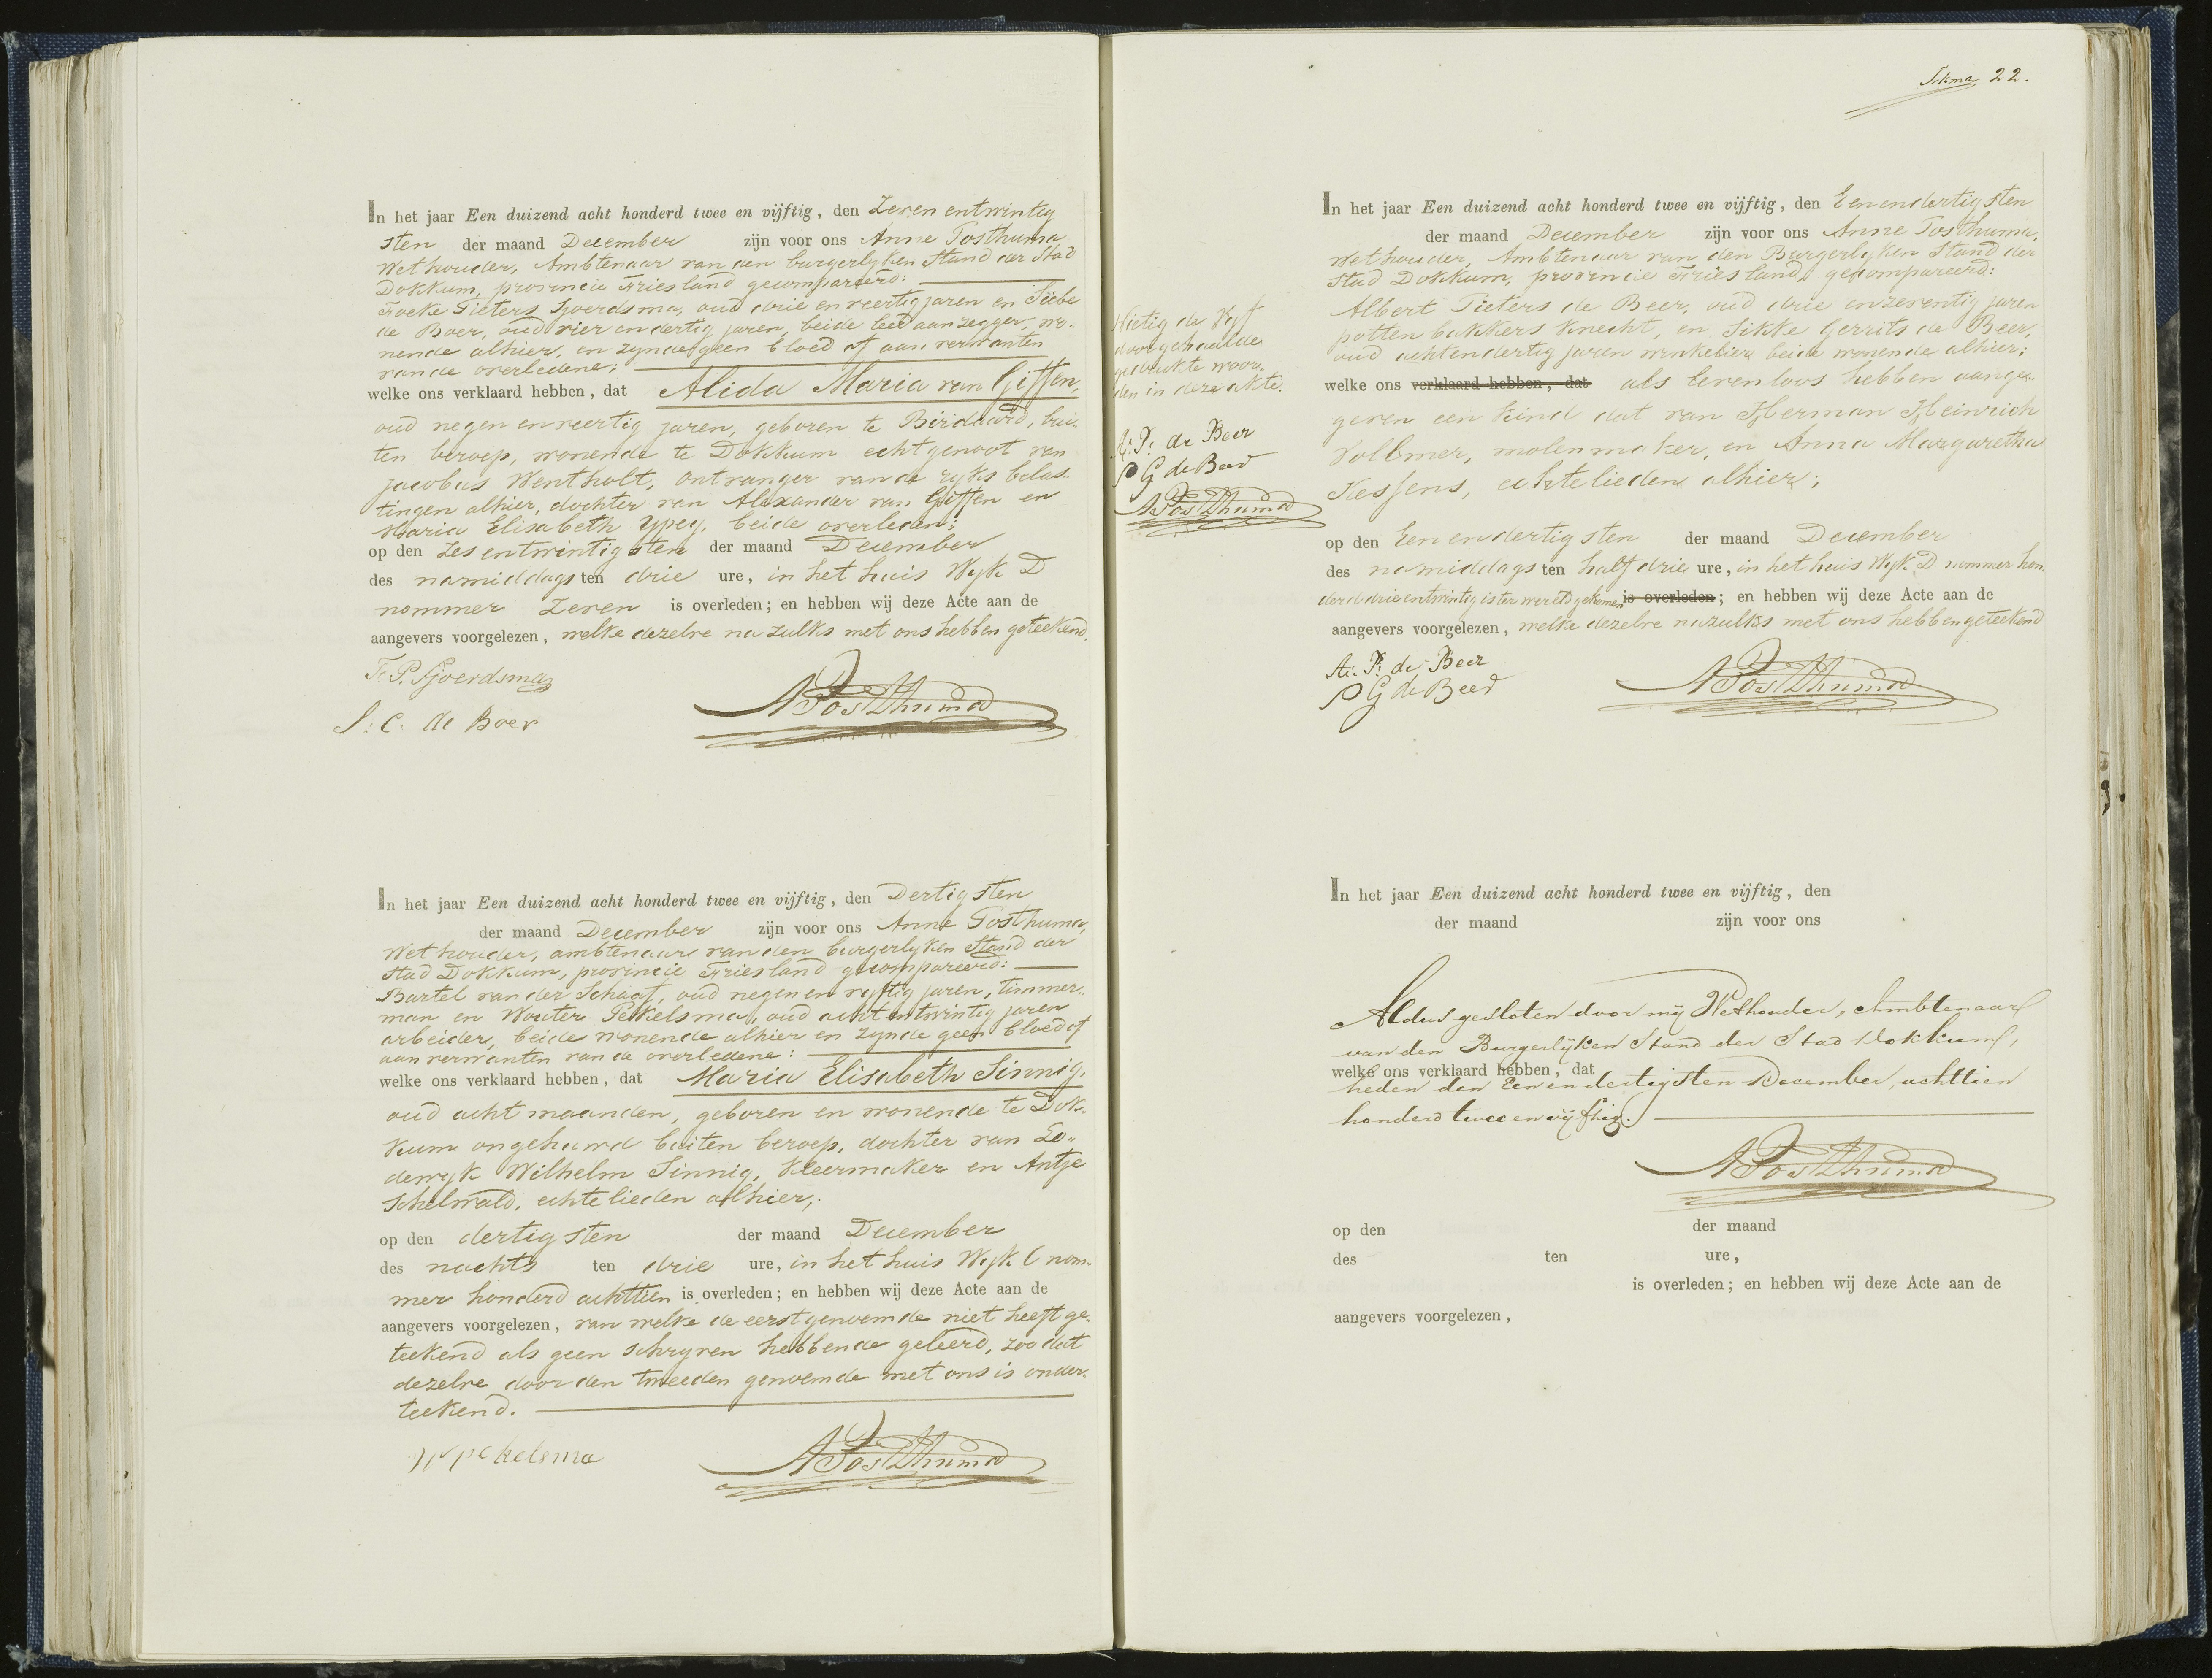 In het jaar Een duizend acht honderd twee en vijftig, den Zeven entwintig
sten der maand December zijn voor ons Anne Posthuma
Wethouder, Ambtenaar van den burgerlyken Stand der Stad
Dokkum, provincie Friesland gecompareerd:
Foeke Pieters Sjoerdsma, oud drie en veertig jaren en Siebe
de Boer, oud vier en dertig jaren, beide leedaanzegger, wo-
nende alhier, en zynde geen bloed of aan verwanten
van de overledene;
welke ons verklaard hebben, dat Alida Maria van Giffen,
oud negen en veertig jaren, geboren te Birdaard, bui-
ten beroep, wonende te Dokkum echtgenoot van
Jacobus Wentholt, ontvanger van de ryks belas-
tingen alhier, dochter van Alexander van Giffen en
Maria Elisabeth Ypey, beide overleden;
op den zes entwintigsten der maand December
des namiddags ten drie ure, in het huis Wyk D
nommer Zeven is overleden; en hebben wij deze Acte aan de
aangevers voorgelezen, welke dezelve na zulks met ons hebben geteekend.
F. P. Sjoerdsma
S. C. de Boer
A Posthuma
In het jaar Een duizend acht honderd twee en vijftig, den Dertigsten
der maand December zijn voor ons Anne Posthuma,
Wethouder, ambtenaar van den burgerlyken Stand der
Stad Dokkum, provincie Friesland gecompareerd:
Bartel van der Schaaf, oud negen en vyftig jaren, timmer-
man en Wouter Pekelsma, oud acht entwintig jaren
arbeider, beide wonende alhier en zynde geen bloed of
aan verwanten van de overledene:
welke ons verklaard hebben, dat Maria Elisabeth Sinnig,
oud acht maanden, geboren en wonende te Dok-
kum ongehuwd buiten beroep, dochter van Lo-
dewyk Wilhelm Sinnig, kleermaker en Antje
Schelwald, echtelieden alhier;
op den dertigsten der maand December
des nachts ten drie ure, in het huis Wyk C nom-
mer honderd achttien is overleden; en hebben wij deze Acte aan de
aangevers voorgelezen, van welke de eerstgenoemde niet heeft ge-
teekend als geen schryven hebbende geleerd, zoo dat
dezelve door den tweeden genoemde met ons is onder-
teekend.
W pekelsma
A Posthuma
22.
In het jaar Een duizend acht honderd twee en vijftig, den Eenendertigsten
der maand December zijn voor ons Anne Posthuma,
wethouder, Ambtenaar van den Burgerlyken Stand der
Stad Dokkum, provincie Friesland, gecompareerd:
Albert Pieters de Beer, oud drie enzeventig jaren
pottenbakkers knecht, en Sikke Gerrits de Beer,
oud achtendertig jaren winkelier beide wonende alhier;
welke ons verklaard hebben, dat als levenloos hebben aange-
geven een kind dat van Herman Heinrich
Vollmer, molenmaker, en Anna Margaretha
Kessens, echtelieden alhier;
op den Eenendertigsten der maand December
des namiddags ten half drie ure, in het huis Wyk D nommer hon-
derd drieentwintig is ter wereld gekomen is overleden; en hebben wij deze Acte aan de
aangevers voorgelezen, welke dezelve nazulks met ons hebben geteekend
A. P. de Beer
S G de Beer
A Posthuma
Nietig de Vyf
doorgehaalde
gedrukte woor-
den in deze akte.
A. P. de Beer
S G de Beer
A Posthuma
In het jaar Een duizend acht honderd twee en vijftig, den
der maand zijn voor ons
Aldus gesloten door mij Wethouder, Ambtenaar
van den Burgerlijken Stand der Stad Dokkum,
welke ons verklaard hebben, dat
heden den Eenendertigsten December achttien
honderd twee en vijftig.
A Posthuma
op den der maand
des ten ure,
is overleden; en hebben wij deze Acte aan de
aangevers voorgelezen,